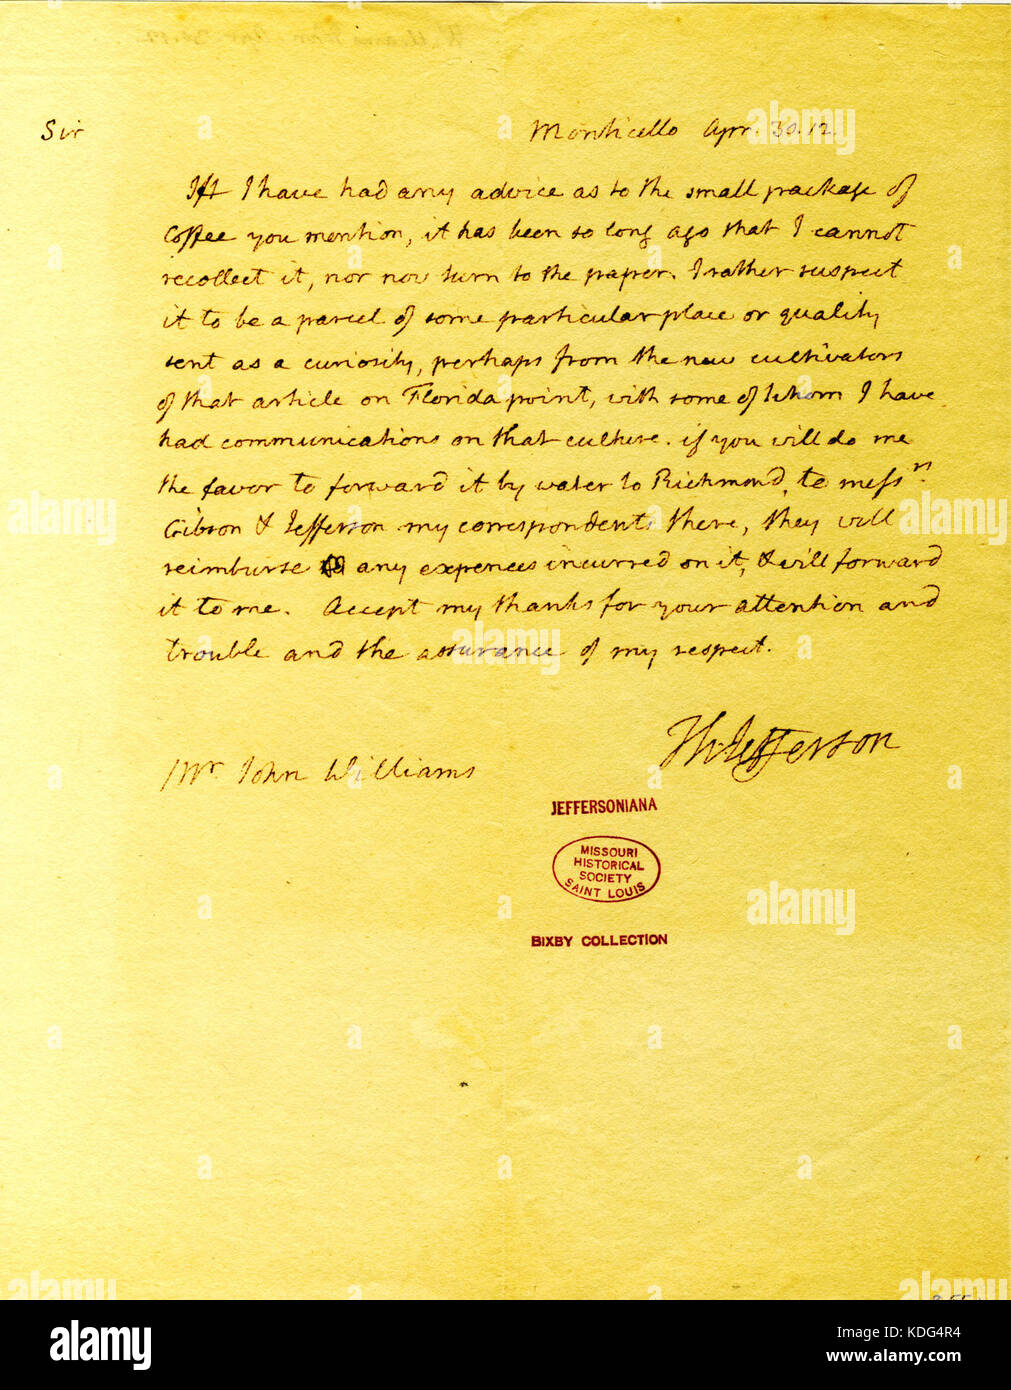 Sir Monticello Apr. 30. 12.
If I have had any advice as to the small package of
coffee you mention, it has been so long ago that I cannot
recollect it, nor now turn to the paper. I rather suspect
it to be a parcel of some particular place or quality
sent as a curiosity, perhaps from the new cultivators
of that article on Florida point, with some of whom I have
had communications on that culture. if you will do me
the favor to forward it by water to Richmond, to mess rs
Gibson & Jefferson my correspondents there, they will
reimburse any expences incurred on it, & will forward
it to me. Accept my thanks for your attention and
trouble and the assurance of my respect.
Th: Jefferson
Mr. John Williams
JEFFERSONIANA
MISSOURI
HISTORICAL
SOCIETY
SAINT LOUIS
BIXBY COLLECTION
alamy
alamy
Image ID: KDG4R4
www.alamy.com